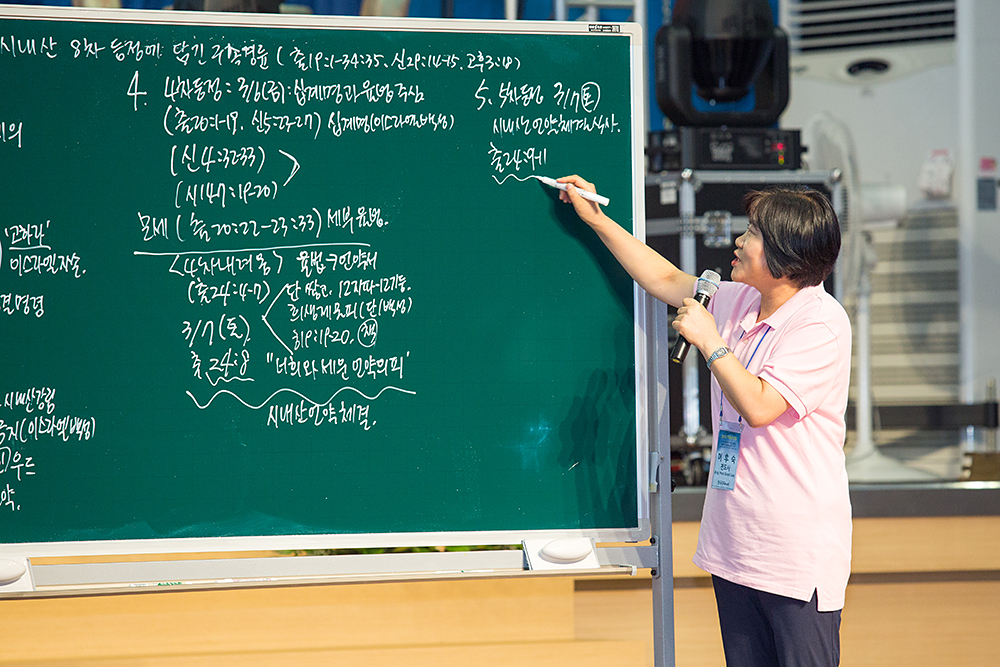 시내산 8차 등정에 담긴 구속경륜 (출19:1-34:35, 신29:14-15, 고후3:18)
4. 4차등정 : 3/6(금) : 십계명과 율법 주심
(출20:1-17, 신5:22-27) 십계명(이스라엘백성)
(신4:32-33)
(시147:19-20)
모세 (출20:22-23:33) 세부 율법.
<4차내려옴> 율법→언약서
(출24:4-7)
단 쌓고, 12지파-12기둥.
희생제물피(단/백성)
히9:19-20, 책
3/7(토),
출24:8 "너희와 세운 언약의 피"
시내산언약체결.
5. 5차등정 3/7(토)
시내산언약체결식사.
출24:9-11
의
이스라엘자손.
결명경
시내산강림
(이스라엘백성)
우드
약.
이후숙
전도사